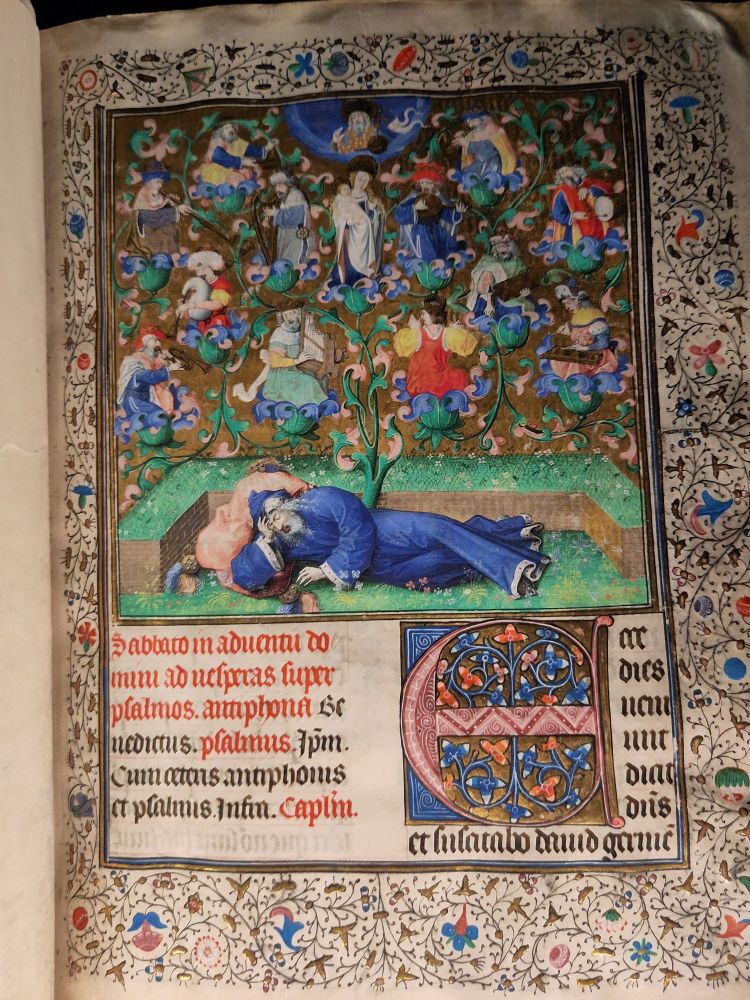 Sabbato in aduentu do
mini ad uesperas super
psalmos. antiphona Be
nedictus. psalmus. Ipm.
Cum ceteris antiphonis
et psalmis. Infra. Caplm.
Ecce
dies
ueni
unt
dicit
dns
et suscitabo dauid germē